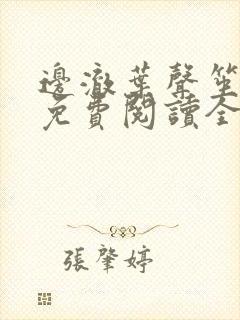 邊澈葉聲笙
免費閱讀全
張肇婷